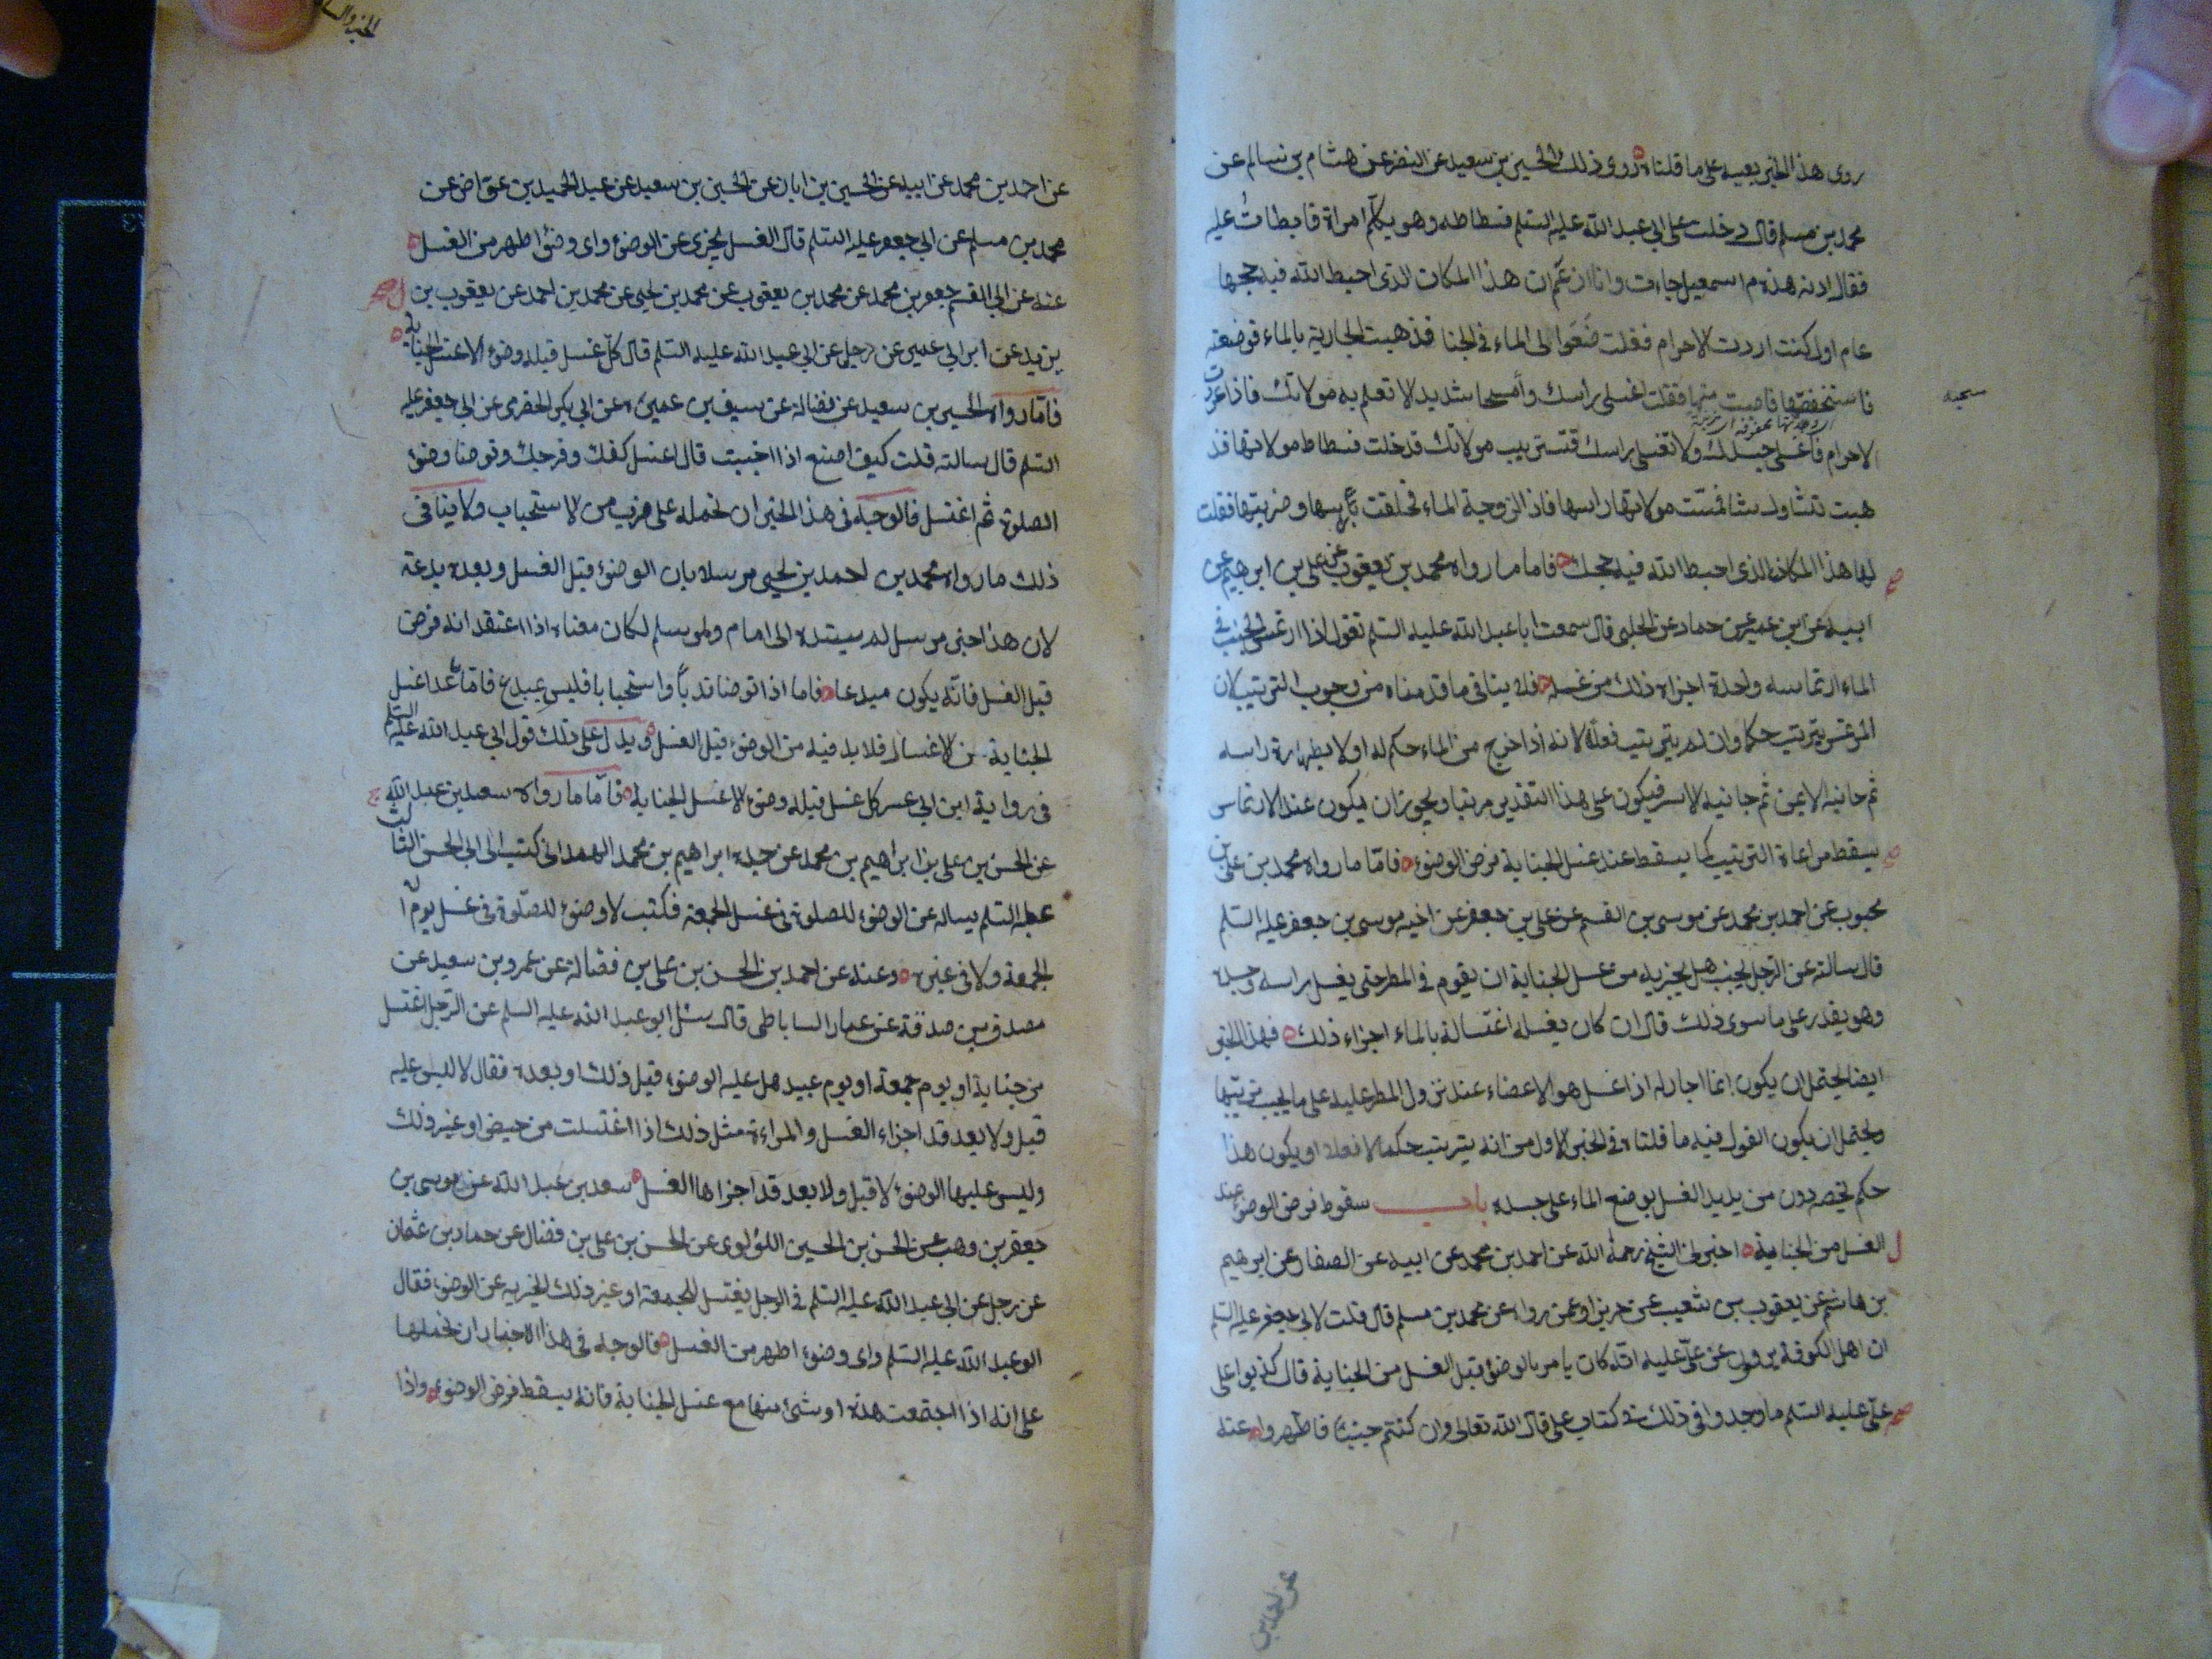 روى هذا الخبر بعينه على ما قلناه روى ذلك الحسين بن سعيد عن النضر عن هشام بن سالم عن
محمد بن مسلم قال دخلت على ابى عبد الله عليه السلم فسطاطه وهو يكلم امراة فابطات عليه
فقال ادنه هذه م اسمعيل جاءت وانا ازعم ان هذا المكان الذى احبط الله فيه حجها
عام اول كنت اردت الاحرام فقلت ضعوا الى الماء فى الخبا فذهبت الجارية بالماء فوضعته
فاستخففتها فاصبت منها فقلت اغسلى راسك وامسحيه مسحا شديدا لا تعلم به مولاتك فاذا اردت
الاحرام فاغسلى جسدك ولا تغسلى راسك فتستريب مولاتك فدخلت فسطاط مولاتها فذ
هبت تتناول شيئا فمست مولاتها راسها فاذا لزوجة الماء فحلقت راسها وضربتها فقلت
لها هذا المكان الذى احبط الله فيه حجك فاما ما رواه محمد بن يعقوب عن على بن ابرهيم عن
ابيه عن ابن عمير عن حماد عن الحلبى قال سمعت ابا عبد الله عليه السلم تقول اذا ارتمس الجنب فى
الماء ارتماسه واحدة اجزاه ذلك من غسله فلا ينافى ما قدمناه من وجوب الترتيب لان
المرتمس يترتب حكما وان لم يترتب فعلا لانه اذا خرج من الماء حكم له اولا بطهارة راسه
ثم جانبه الايمن ثم جانبه الايسر فيكون على هذا التقدير مرتبا ويجوز ان يكون عند الارتماس
يسقط مراعاة الترتيب كما يسقط عند غسل الجنابة فرض الوضوء فاما ما رواه محمد بن على بن
محبوب عن احمد بن محمد عن موسى بن القسم عن على بن جعفر عن اخيه موسى بن جعفر عليه السلم
قال سالته عن الرجل يجنب هل يجزيه من غسل الجنابة ان يقوم فى المطر حتى يغسل راسه وجسده
وهو يقدر على ما سوى ذلك قال ان كان يغسله اغتساله بالماء اجزاه ذلك فهذا الخبر
ايضا يحتمل ان يكون انما اجاز له اذا غسل هو الاعضاء عند نزول المطر عليه على ما يجب ترتيبها
ويحتمل ان يكون القول فيه ما قلناه فى الخبر الاول من انه يترتب حكما لا فعلا او يكون هذا
حكم يخصه دون من يريد الغسل بوضع الماء على جسده باب سقوط فرض الوضوء عند
الغسل من الجنابة اخبرنى الشيخ رحمه الله عن احمد بن محمد عن ابيه عن الصفار عن ابرهيم
بن هاشم عن يعقوب بن شعيب عن حريز او عمن رواه عن محمد بن مسلم قال قلت لابى جعفر عليه السلم
ان اهل الكوفة يروون عن على عليه انه كان يامر بالوضوء قبل الغسل من الجنابة قال كذبوا على
على عليه السلم ما وجدوا فى ذلك فى كتاب على قال الله تعالى وان كنتم جنبا فاطهروا عنه
عن احمد بن
عن احمد بن محمد عن ابيه عن الحسين بن ابان عن الحسين بن سعيد عن عبد الحميد بن عواض عن
محمد بن مسلم عن ابى جعفر عليه السلم قال الغسل يجزى عن الوضوء واى وضوء اطهر من الغسل
عنه عن ابى القسم جعفر بن محمد عن محمد بن يعقوب عن محمد بن يحيى عن محمد بن احمد عن يعقوب بن
يزيد عن ابن ابى عمير عن رجل عن ابى عبد الله عليه السلم قال كل غسل قبله وضوء الا غسل الجنابة
فاما رواه الحسين بن سعيد عن فضالة عن سيف بن عميرة عن ابى بكر الحضرمى عن ابى جعفر عليه
السلم قال سالته قلت كيف اصنع اذا اجنبت قال اغسل كفك وفرجك وتوضا وضوء
الصلوة ثم اغتسل فالوجه فى هذا الخبر ان نحمله على ضرب من الاستحباب ولا ينافى
ذلك ما رواه محمد بن احمد بن يحيى مرسلا بان الوضوء قبل الغسل وبعده بدعة
لان هذا خبر مرسل لم يسنده الى امام ولو سلم لكان معناه اذا اعتقد انه فرض
قبل الغسل فانه يكون مبدعا فاما اذا توضا ندبا واستحبابا فليس بمبدع فاما ما عدا غسل
الجنابة من الاغسال فلا بد فيه من الوضوء قبل الغسل ويدل على ذلك قول ابى عبد الله عليه السلم
فى رواية ابن ابى عمير كل غسل قبله وضوء الا غسل الجنابة فاما ما رواه سعد بن عبد الله
عن الحسن بن على بن ابراهيم بن محمد عن جده ابراهيم بن محمد الهمدانى كتب الى ابى الحسن الثالث
عليه السلم يساله عن الوضوء للصلوة فى غسل الجمعة فكتب لا وضوء للصلوة فى غسل يوم
الجمعة ولا فى غيره وعنه عن احمد بن الحسن بن على بن فضالة عن عمرو بن سعيد عن
مصدق بن صدقة عن عمار الساباطى قال سئل ابو عبد الله عليه السلم عن الرجل اغتسل
من جنابة او يوم جمعة او يوم عيد هل عليه الوضوء قبل ذلك او بعده فقال لا ليس عليه
قبل ولا بعد قد اجزاه الغسل والمراءة مثل ذلك اذا اغتسلت من حيض او غير ذلك
وليس عليها الوضوء لا قبل ولا بعد قد اجزاها الغسل سعد بن عبد الله عن موسى بن
جعفر بن وهب عن الحسن بن الحسين اللؤلوى عن الحسن بن على بن فضال عن حماد بن عثمان
عن رجل عن ابى عبد الله عليه السلم فى الرجل يغتسل للجمعة او غير ذلك ايجزيه عن الوضوء فقال
ابو عبد الله عليه السلم واى وضوء اطهر من الغسل فالوجه فى هذا الاخبار ان نحملها
على انه اذا اجتمعت هذه او شئ منها مع غسل الجنابة فانه يسقط فرض الوضوء واذا